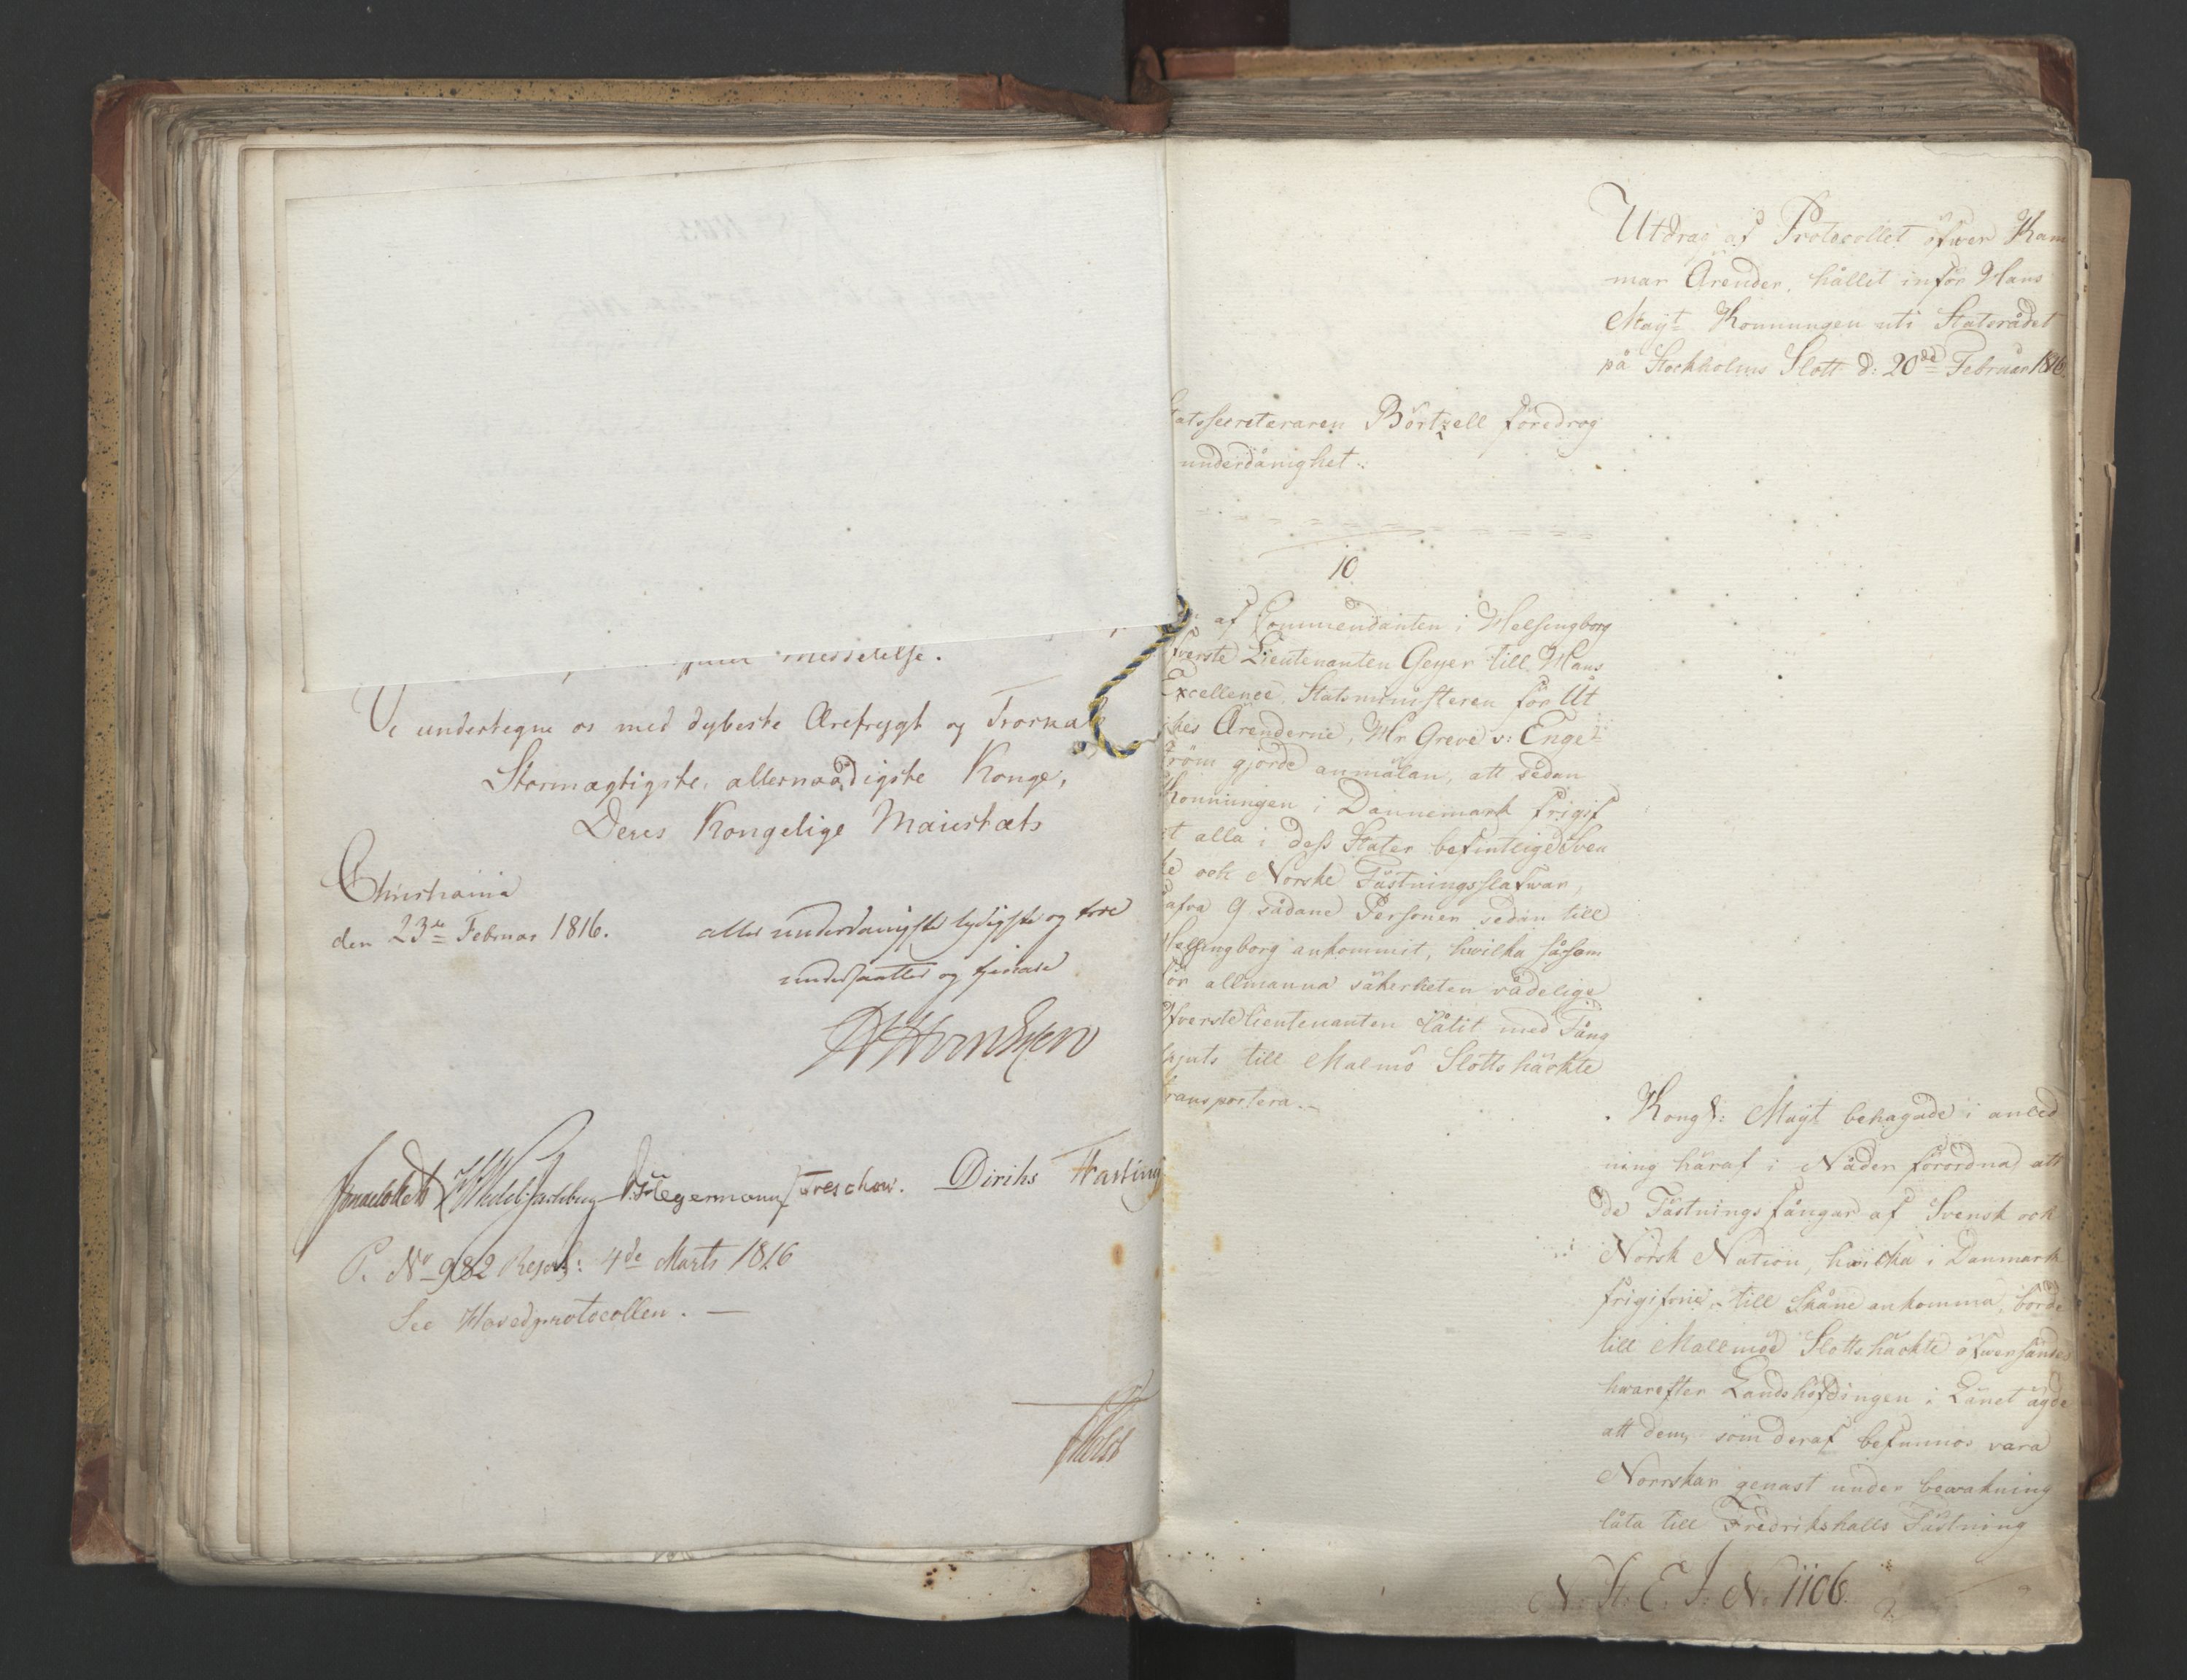 meddelelse.
Vi undertegne os med dybeste Ærefrygt og Troeska
Stormægtigste, allernaadigste Konge,
Deres Kongelige Maiestæts
Christiania
den 23de Februar 1816.
allerunderdanigste lydigste og troe
undersaatter og tjenere
Sommerhielm Wedel Jarlsberg Hegermann Treschow. Diriks Fasting
P. No 982 Resol: 4de Marts 1816
See Hovedprotocollen. —
Holst
Utdrag af Protocollet öfwer Kam
mar Ärender, hållit inför Hans
Mayt Konnungen uti Statsrådet
på Stockholms Slott d: 20de Februar 1816.
atssecreteraren Börtzell föredrog
underdånighet:
10
af Commendanten i Helsingborg
fverste Lieutenanten Geyer till Hans
Excellence, Statsministeren för Ut
kes Ärenderne, Hr Greve v: Enge
tröm gjorde anmälan, att sedan
Konnungen i Dannemark frigif
t alla i dess Stater befintlige Sven
ke och Norske Fästningsslafwar,
afva 9 sådane Personer sedan till
Helsingborg ankommit, hwilka såsom
för allmänna säkerheten vådelige
Öfverstelieutenanten låtit med Fång
skjuts till Malmö Slottshäckte
transportera. —
Kongl: Mayt behagade i anled
ning häraf i Nåder förordna att
de Fästningsfångar af Svensk och
Norsk Nation, hwilka i Danmark
frigifvne, till Skåne ankomma, borde
till Mallmöe Slottshäckte öfwersändes
hwarefter Landshöfdingen i Länet ägde
att dem, som deraf befunnos vara
Norrskar genast under bewakning
låta till Fredrikshalls Fästning
N. St. E. J. No 1106.